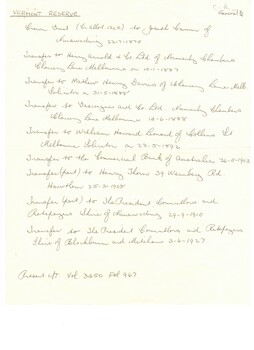 VERMONT RESERVE
General
Crown Grant to Josiah
Nunawading 22-7-1870
Transfer to Henry Arnold & Co Ltd of Normanby Chambers
Chancery Lane Melbourne on
Transfer to Mathew Henry Davies of Chancery Lane Melb
Solicitor on 31-5-1888
Transfer to and Co Ltd Normanby Chambers
Chancery Lane Melbourne 16-6-1888
Transfer to William Howard of Collins St
Melbourne Solicitor on 27-5-1896
Transfer to the Commercial Bank of Australia
Transfer (part) to Henry Thomas 39 Rd
Hawthorn
Transfer (part) to The President Councillors and
Ratepayers Shire of Nunawading 29-9-1910
Transfer to The President Councillors and Ratepayers
Shire of Blackburn and Mitcham 2-6-1927
Present c/t Vol 3450 Fol 967